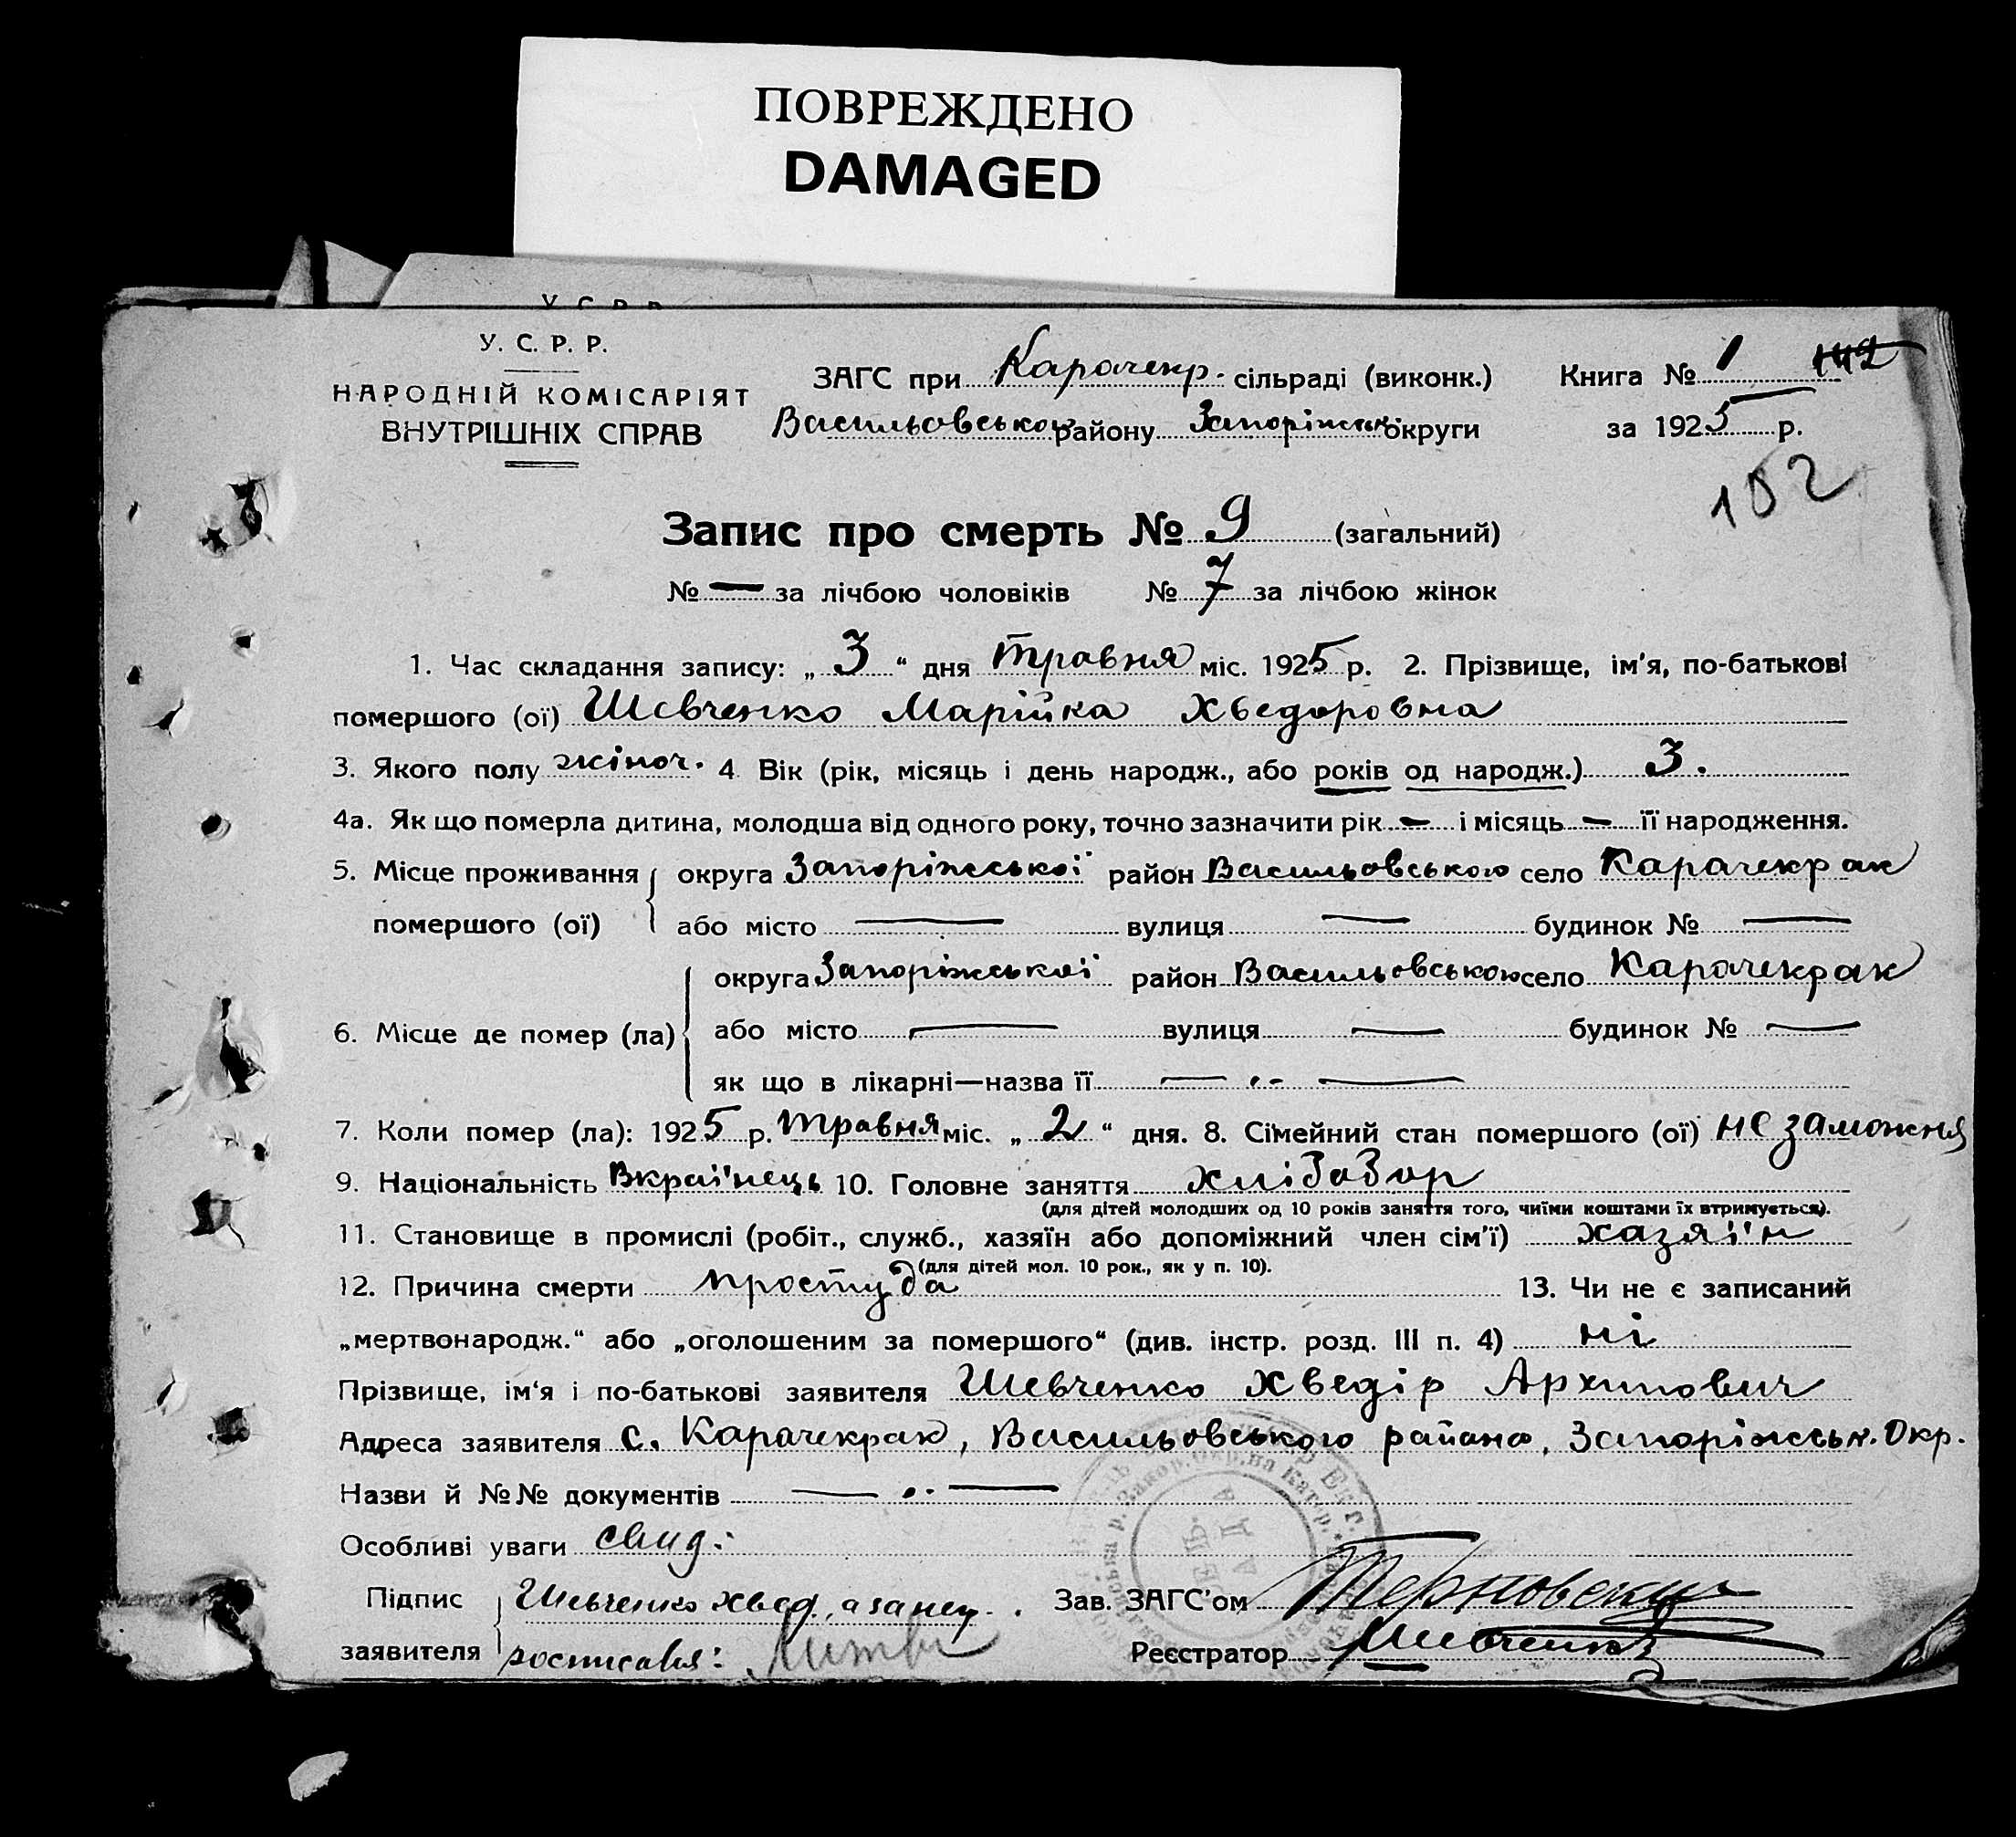 ПОВРЕЖДЕНО
DAMAGED
У. С. Р. Р.
У. С. Р. Р.
НАРОДНІЙ КОМІСАРІЯТ
ВНУТРІШНІХ СПРАВ
ЗАГС при Карачекр. сільраді (виконк.) Книга № 1 142
Васильовського району Запоріжськ. округи за 1925 р.
102
Запис про смерть № 9 (загальний)
№ — за лічбою чоловіків № 7 за лічбою жінок
1. Час складання запису: „ 3 “ дня травня міс. 1925 р. 2. Прізвище, ім'я, по-батькові
помершого (ої) Шевченко Марійка Хведоровна
3. Якого полу жіноч. 4 Вік (рік, місяць і день народж., або років од народж.) 3.
4а. Як що померла дитина, молодша від одного року, точно зазначити рік — і місяць — її народження.
5. Місце проживання округа Запоріжської район Васильовського село Карачекрак
помершого (ої) або місто — вулиця — будинок № —
округа Запоріжської район Васильовського село Карачекрак
6. Місце де помер (ла) або місто — вулиця — будинок № —
як що в лікарні—назва її — „ —
7. Коли помер (ла): 1925 р. травня міс. „ 2 “ дня. 8. Сімейний стан помершого (ої) незаможня
9. Національність Вкраїнець 10. Головне заняття хлібобор
(для дітей молодших од 10 років заняття того, чиїми коштами їх втримується).
11. Становище в промислі (робіт., служб., хазяїн або допоміжний член сім'ї) хазяїн
(для дітей мол. 10 рок., як у п. 10).
12. Причина смерти простуда 13. Чи не є записаний
„мертвонародж.“ або „оголошеним за помершого“ (див. інстр. розд. III п. 4) ні
Прізвище, ім'я і по-батькові заявителя Шевченко Хведір Архипович
Адреса заявителя с. Карачекрак, Васильовського района, Запоріжськ. Окр.
Назви й №№ документів — „ —
Особливі уваги свид:
Підпис Шевченко Хвед, а за неп. Зав. ЗАГС'ом Терновский
заявителя росписався: Реєстратор Шевченко